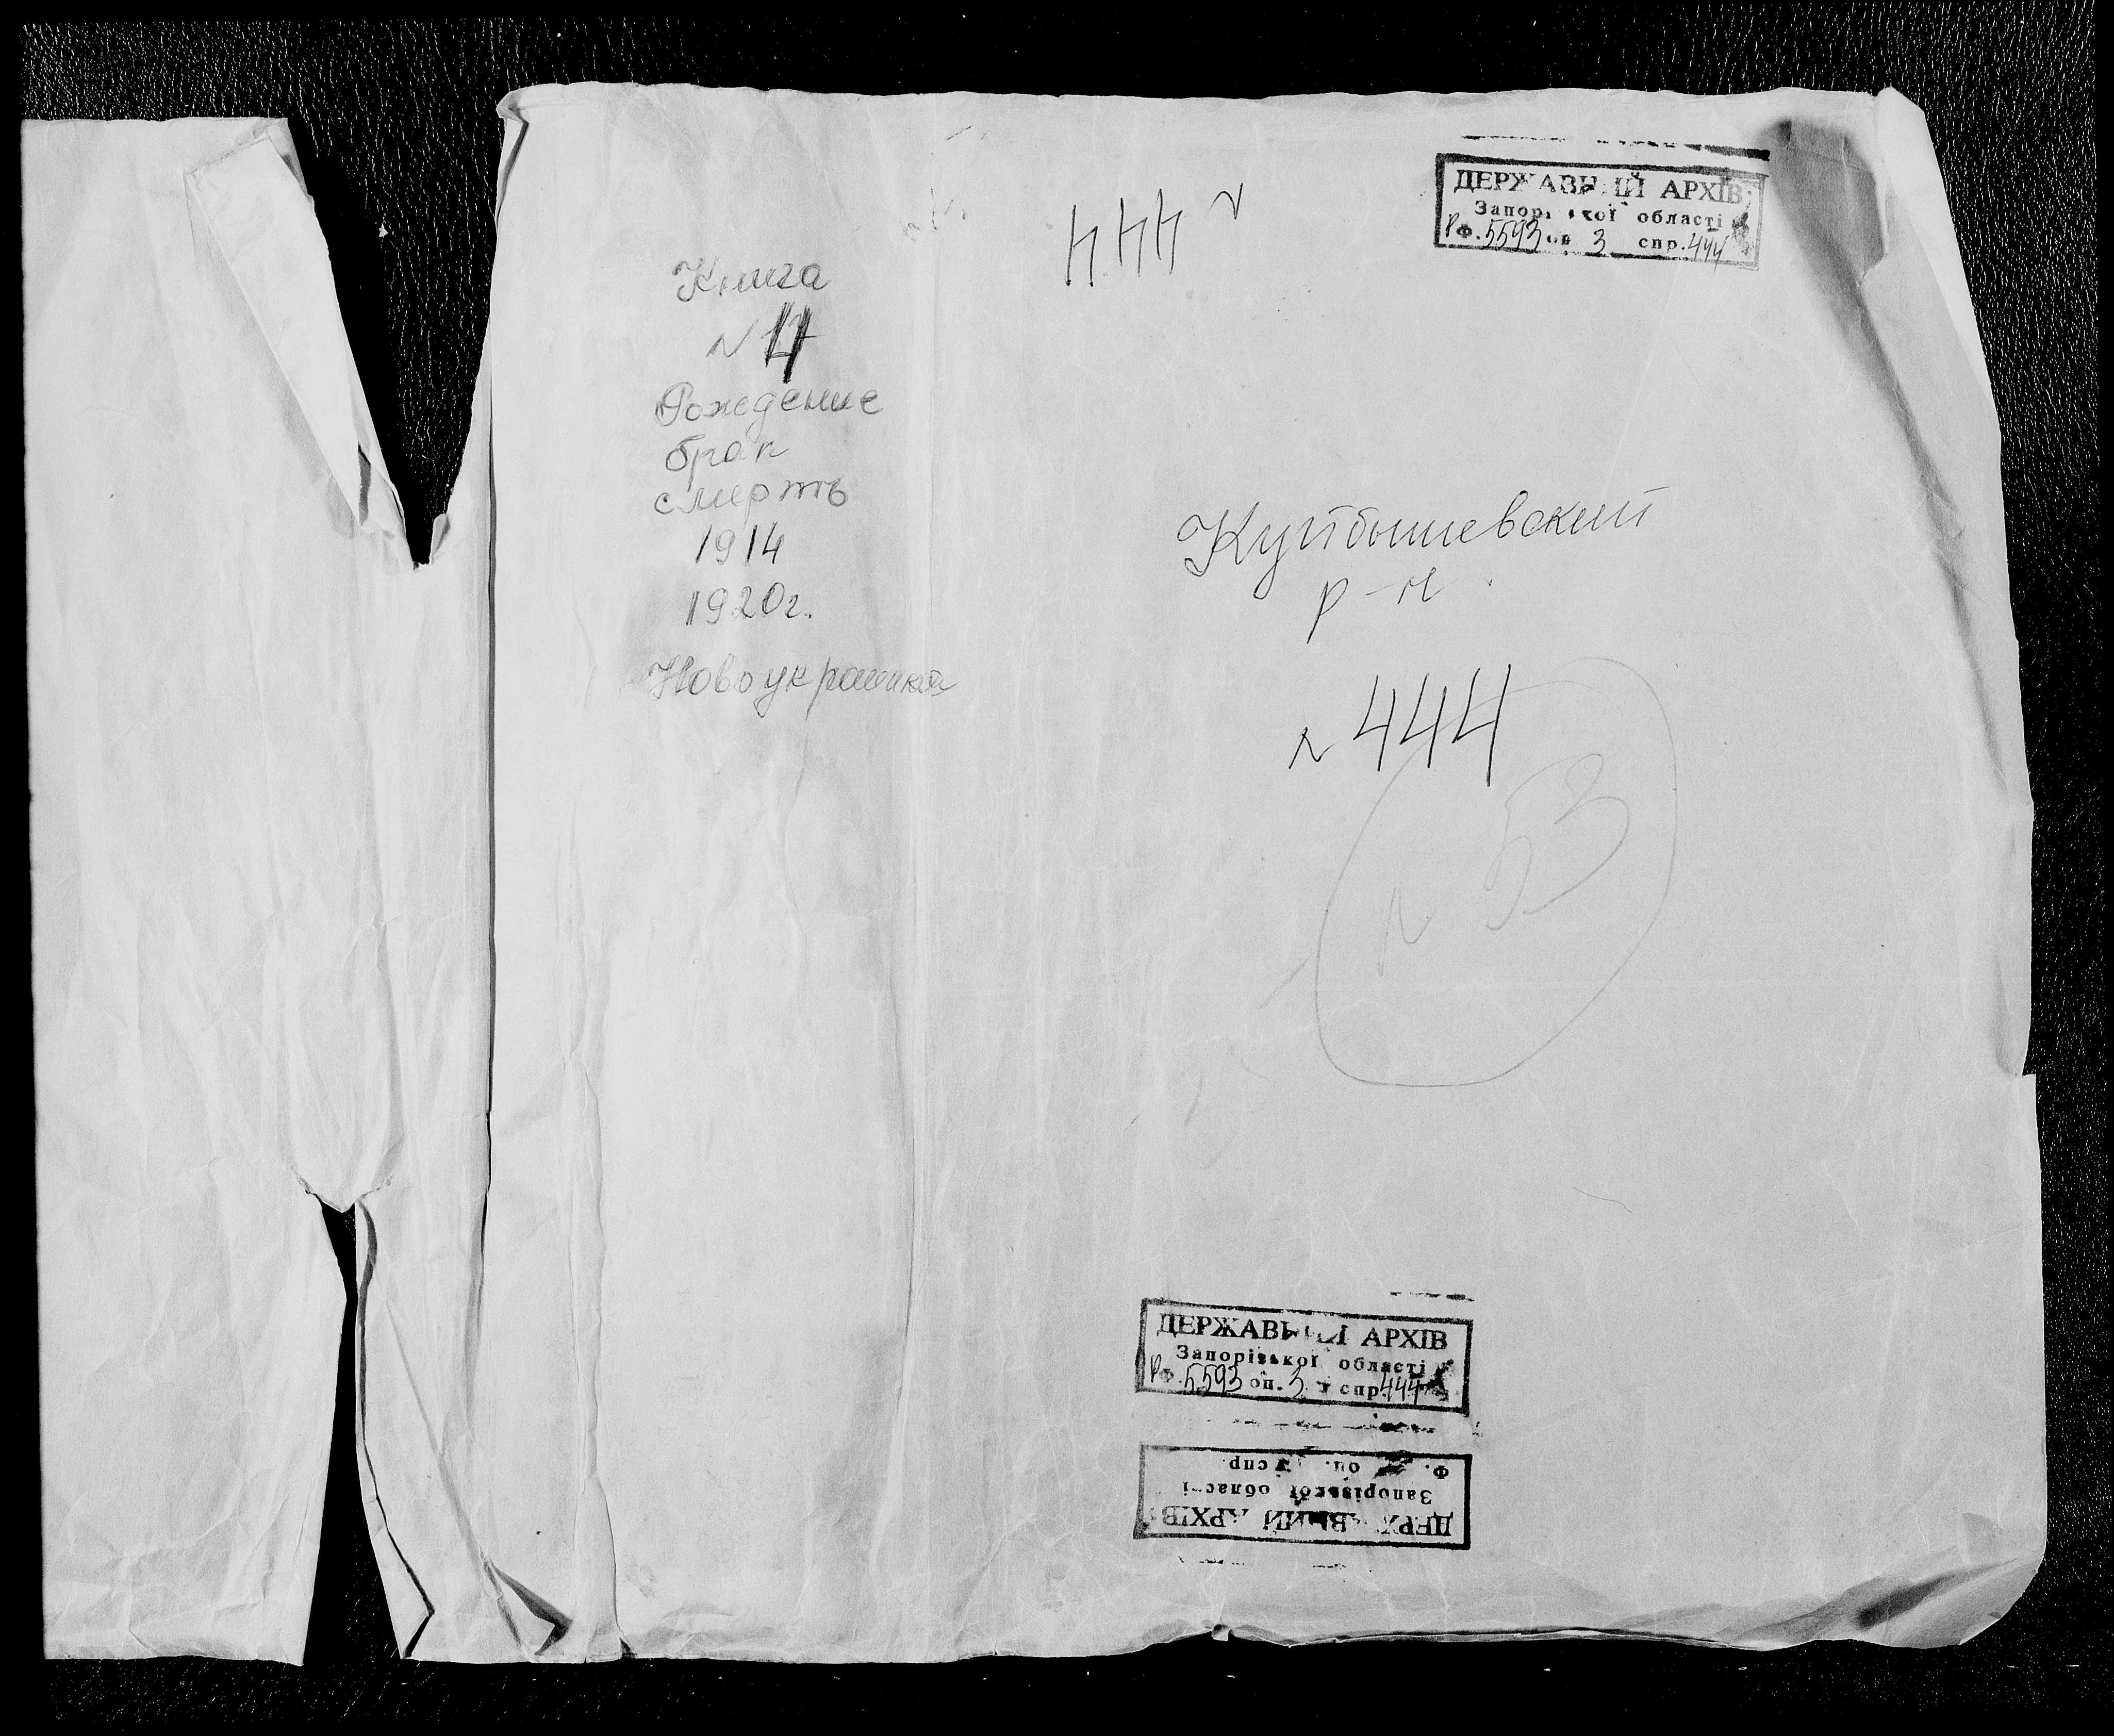 Книга
N 17
Рождение
брак
смерть
1914
1920г.
Новоукраинка
N 444
ДЕРЖАВНИЙ АРХІВ
Запорізької області
Р Ф. 5593 оп 3 спр. 444
Куйбышевский
р-н
N 444
N 53
ДЕРЖАВНИЙ АРХІВ
Запорізької області
Р Ф. 5593 оп. 3 спр. 444
ДЕРЖАВНИЙ АРХІВ
Запорізької області
Ф. оп. спр.